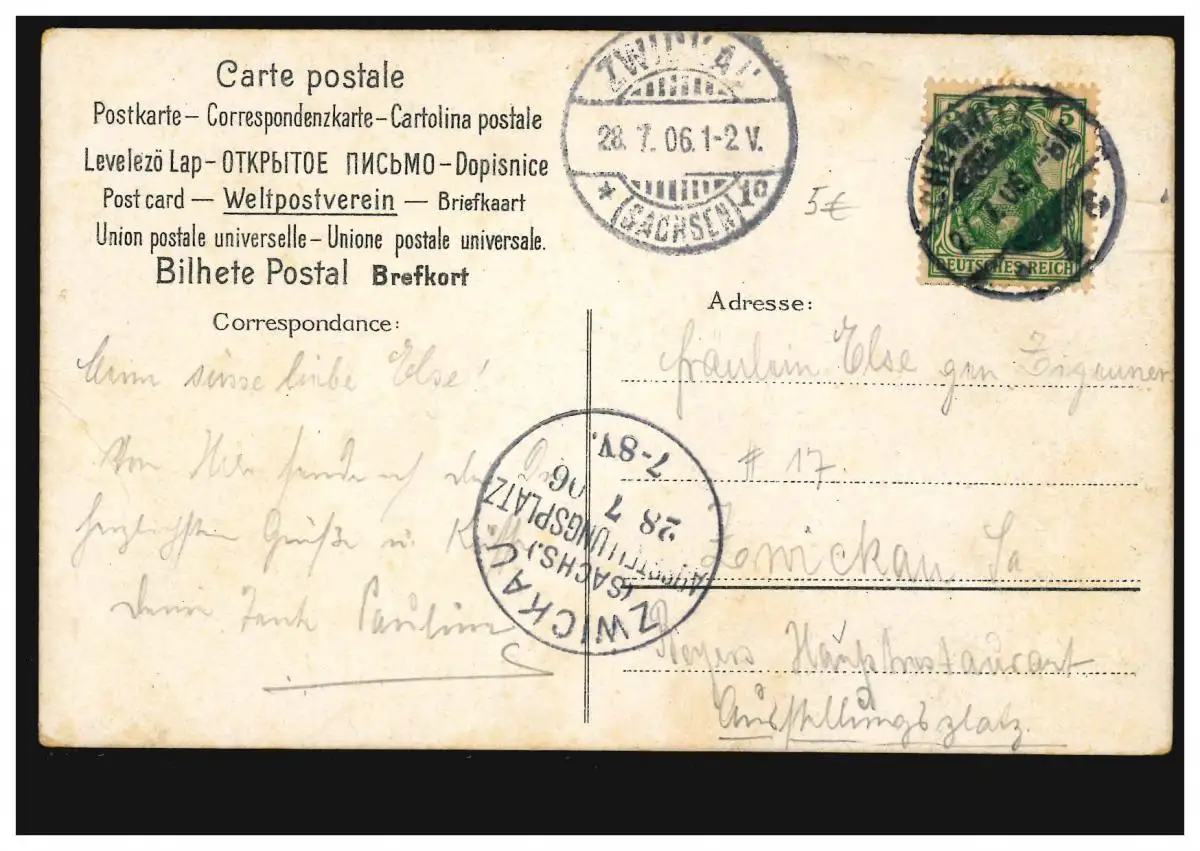 Carte postale
Postkarte – Correspondenzkarte – Cartolina postale
Levelezö Lap – ОТКРЫТОЕ ПИСЬМО – Dopisnice
Post card — Weltpostverein — Briefkaart
Union postale universelle – Unione postale universale.
Bilhete Postal Brefkort
ZWICKAU
28. 7. 06. 1-2 V.
* (SACHSEN)
5€
5
DEUTSCHES REICH
Correspondance:
Adresse:
Meine süsse liebe Else!
Von hier sende ich dir die
herzlichsten Grüße u. Küsse
Deine Tante Pauline
ZWICKAU
(SACHS.)
AUSSTELLUNGSPLATZ
28 7 06
7-8V.
Fräulein Else gen. Zigeuner
# 17.
Zwickau Sa
Hauptrestaurant
Ausstellungsplatz.